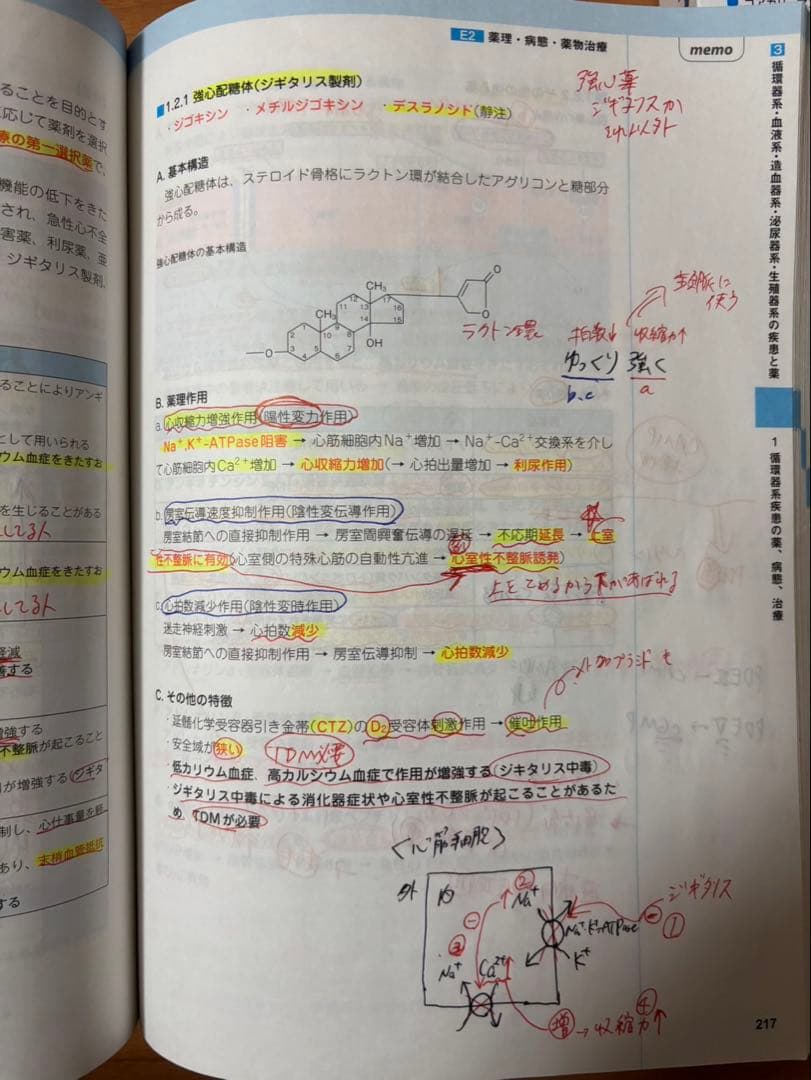 ることを目的とす
応じて薬剤を選択
療の第一選択薬で、
機能の低下をきた
され、急性心不全
害薬、利尿薬、亜
ジギタリス製剤、
ることによりアンギ
として用いられる
ウム血症をきたすお
を生じることがある
してる人
ウム血症をきたすお
してる人
軽減
善する
増強する
不整脈が起こること
が増強する(ジギタ
制し、心仕事量を軽
あり、末梢血管抵抗
する
E2 薬理・病態・薬物治療
memo
■1.2.1 強心配糖体(ジギタリス製剤)
・ジゴキシン ・メチルジゴキシン ・デスラノシド(静注)
強心薬
ジギタリスか
それ以外
A. 基本構造
強心配糖体は、ステロイド骨格にラクトン環が結合したアグリコンと糖部分
から成る。
強心配糖体の基本構造
CH₃ CH₃ OH O O O
1 2 3 4 5 6 7 8 9 10 11 12 13 14 15 16 17
ラクトン環
拍数↓ 収縮力↑
ゆっくり 強く
b,c a
B. 薬理作用
a. 心収縮力増強作用(陽性変力作用)
Na⁺,K⁺-ATPase阻害 → 心筋細胞内Na⁺増加 → Na⁺-Ca²⁺交換系を介し
て心筋細胞内Ca²⁺増加 → 心収縮力増加(→ 心拍出量増加 → 利尿作用)
b. 房室伝導速度抑制作用(陰性変伝導作用)
房室結節への直接抑制作用 → 房室間興奮伝導の遅延 → 不応期延長 → 上室
性不整脈に有効(心室側の特殊心筋の自動性亢進 → 心室性不整脈誘発)
上をとめるから下があばれる
c. 心拍数減少作用(陰性変時作用)
迷走神経刺激 → 心拍数減少
房室結節への直接抑制作用 → 房室伝導抑制 → 心拍数減少
メトクロプラミド も
C. その他の特徴
・延髄化学受容器引き金帯(CTZ)のD₂受容体刺激作用 → 催吐作用
・安全域が狭い TDM必要
・低カリウム血症、高カルシウム血症で作用が増強する(ジギタリス中毒)
・ジギタリス中毒による消化器症状や心室性不整脈が起こることがあるた
め、TDMが必要
〈心筋細胞〉
外 内 ② ↑Na⁺
ジギタリス
⊖ ①
Na⁺・K⁺-ATPase
K⁺
⊖
③ Na⁺ Ca²⁺↑
増 → 収縮力↑ ④
3 循環器系・血液系・造血器系・泌尿器系・生殖器系の疾患と薬
1 循環器系疾患の薬、病態、治療
217